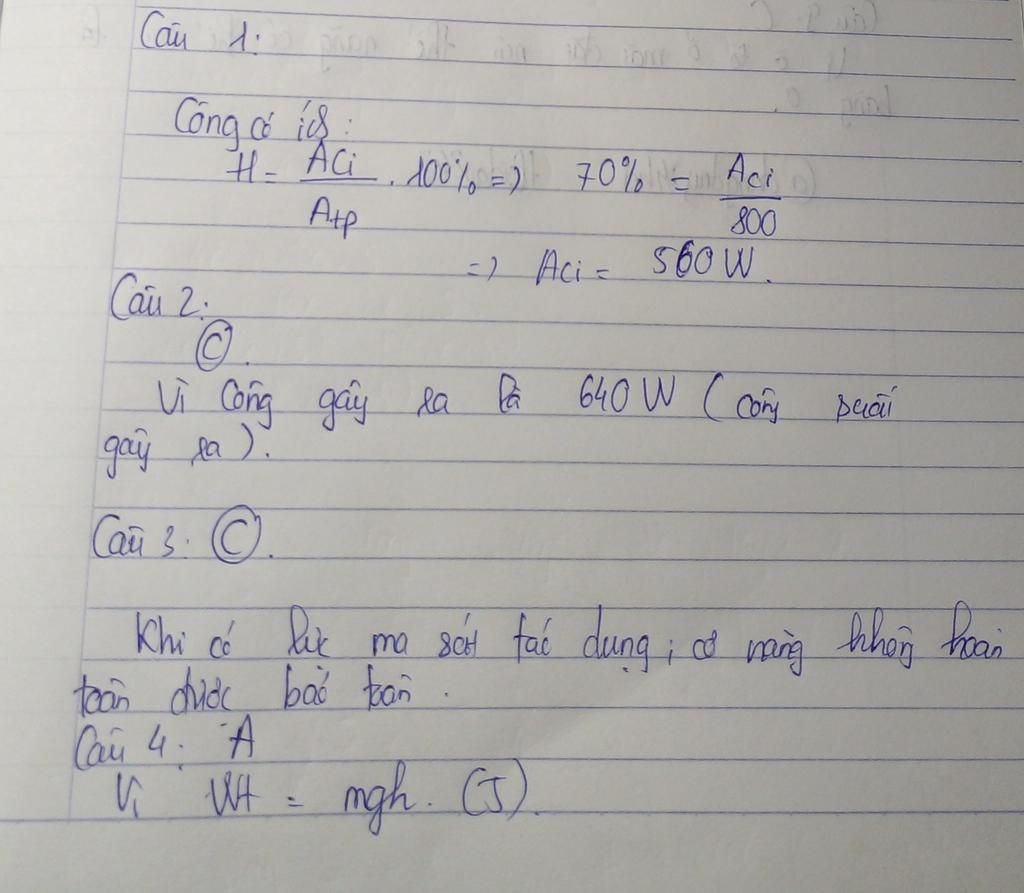 Câu 1:
Công có ích:
H = ACi / Atp . 100% => 70% = Aci / 800
=> Aci = 560 W.
Câu 2:
C.
Vì công gây ra là 640 W (công suất
gây ra).
Câu 3: C.
Khi có lực ma sát tác dụng; cơ năng không hoàn
toàn được bảo toàn.
Câu 4: A
Vì Wt = mgh. (J).